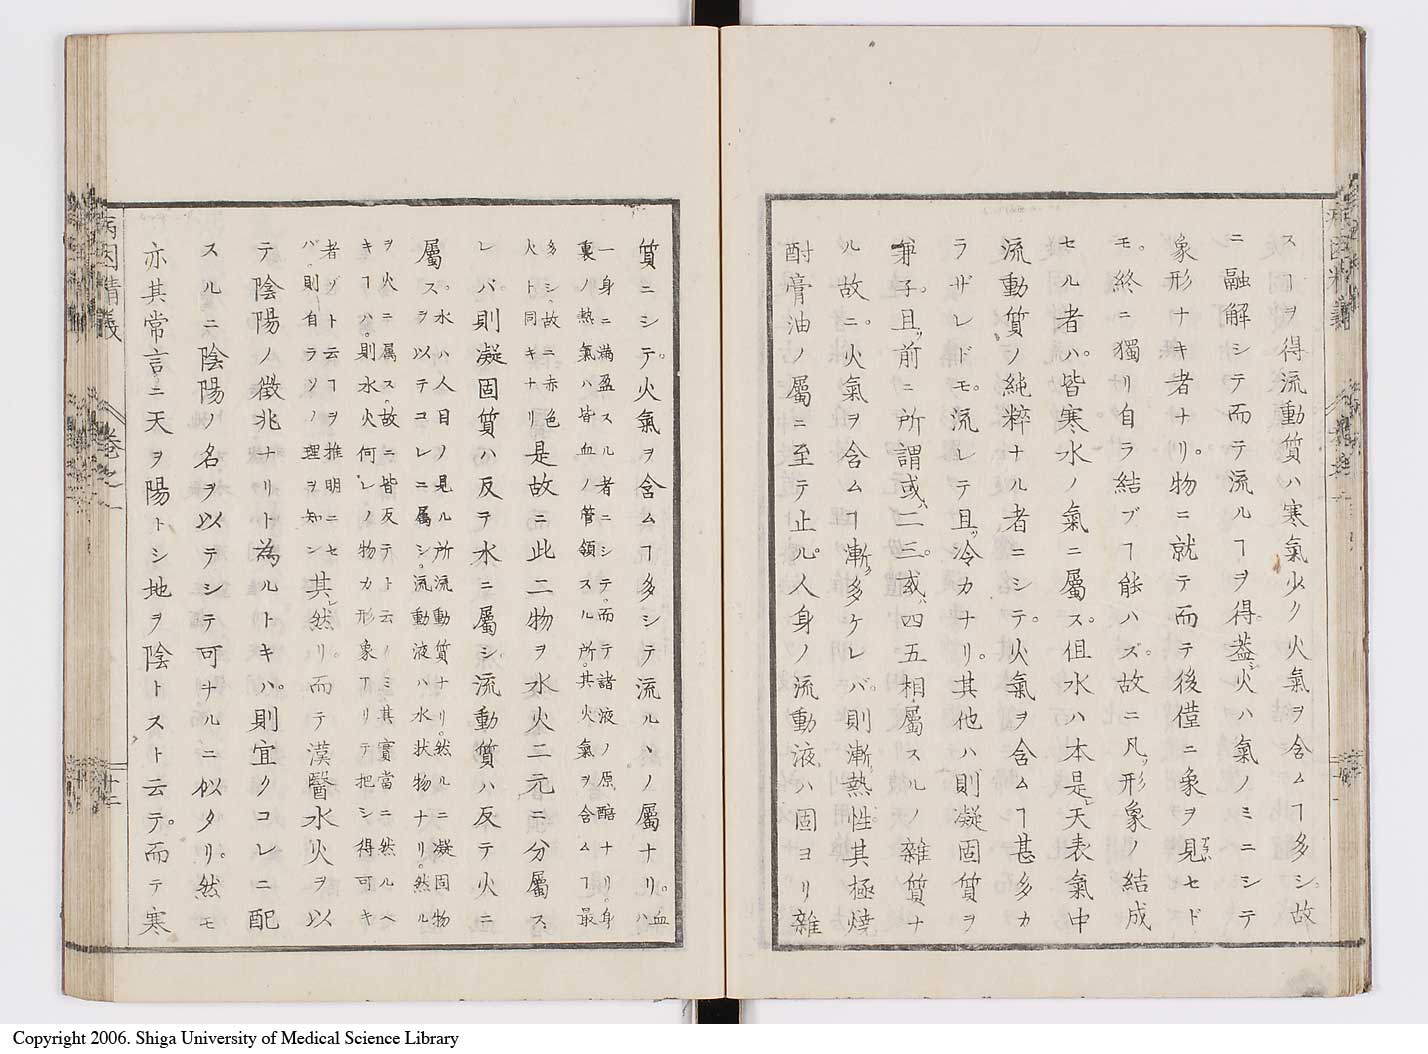 スヿヲ得流動質ハ寒氣少ク火氣ヲ含ムヿ多シ。故
ニ融解シテ而テ流ルヿヲ得。蓋シ火ハ氣ノミニシテ
象形ナキ者ナリ。物ニ就テ而テ後僅ニ象ヲ見セド
モ。終ニ獨リ自ラ結ブヿ能ハズ。故ニ凡ソ形象ノ結成
セル者ハ。皆寒水ノ氣ニ屬ス。但水ハ本是レ天表氣中
流動質ノ純粹ナル者ニシテ。火氣ヲ含ムヿ甚多カ
ラザレドモ。流レテ且ツ冷カナリ。其他ハ則凝固質ヲ
兼子。且ツ前ニ所謂或ハ二三。或ハ四五相屬スルノ雜質ナ
ル故ニ。火氣ヲ含ムヿ漸ク多ケレバ。則漸ク熱性其極燒
酎膏油ノ屬ニ至テ止ル。人身ノ流動液ハ固ヨリ雜
質ニシテ。火氣ヲ含ムヿ多シテ流ルヽノ屬ナリ。血ハ
一身ニ滿盈スル者ニシテ。而テ諸液ノ原醅ナリ。身
裏ノ熱氣ハ皆血ノ管領スル所。其火氣ヲ含ムヿ最
多シ。故ニ赤色
火ト同キナリ是故ニ此二物ヲ水火二元ニ分屬ス
レバ則凝固質ハ反テ水ニ屬シ。流動質ハ反テ火ニ
屬ス。水ハ人目ノ見ル所流動質ナリ。然ルニ凝固物
ヲ以テコレニ屬シ。流動液ハ水状物ナリ。然ル
ヲ火ニ属ス。故ニ皆反テト云ノミ其實當ニ然ルベ
キヿハ。則水火何レノ物カ形象アリテ把シ得可キ
者ゾト云ヿヲ推明ニセ
バ。則自ラソノ理ヲ知ン其レ然リ。而テ漢醫水火ヲ以
テ陰陽ノ徴兆ナリト為ルトキハ。則宜クコレニ配
スルニ陰陽ノ名ヲ以テシテ可ナルニ似タリ。然モ
亦其常言ニ天ヲ陽トシ地ヲ陰トスト云テ。而テ寒
病因精義
卷之一
十二
Copyright 2006. Shiga University of Medical Science Library